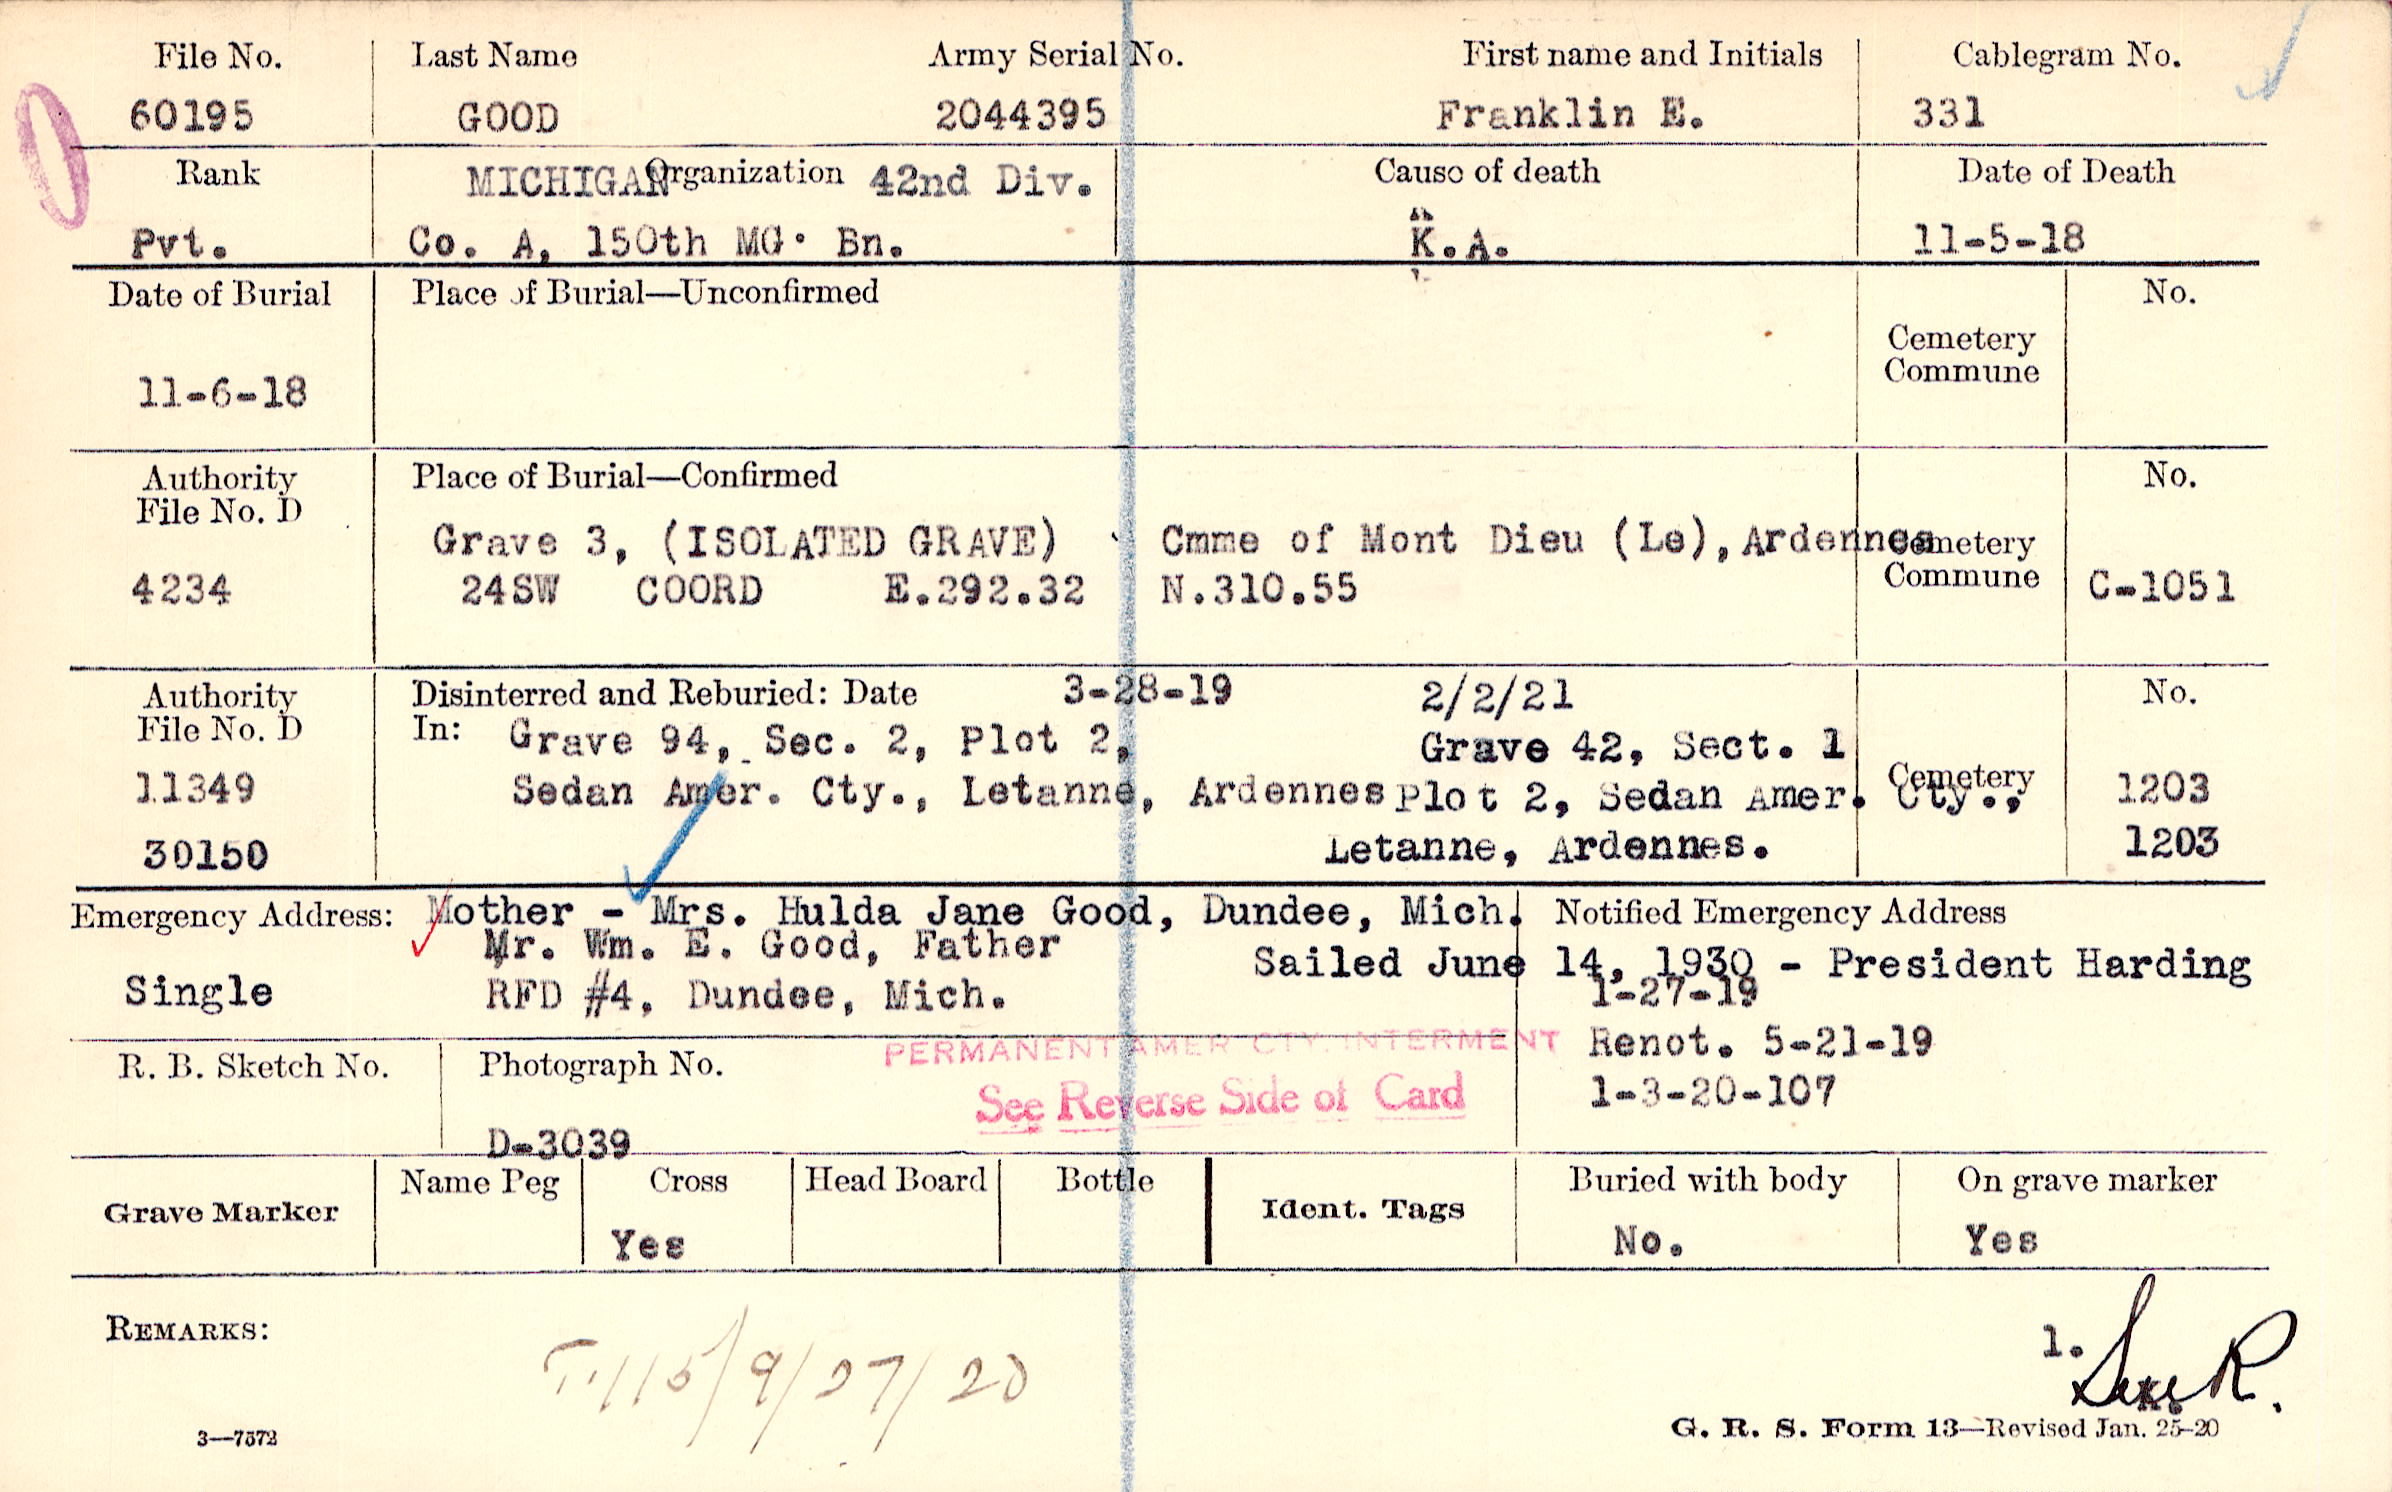 File No. Last Name Army Serial No. First name and Initials Cablegram No.
60195 GOOD 2044395 Franklin E. 331
Rank MICHIGAN Organization 42nd Div. Cause of death Date of Death
Pvt. Co. A, 150th MG. Bn. K.A. 11-5-18
Date of Burial Place of Burial—Unconfirmed No.
Cemetery
Commune
11-6-18
Authority Place of Burial—Confirmed No.
File No. D
Grave 3, (ISOLATED GRAVE) Cmme of Mont Dieu (Le), Ardennes Cemetery
4234 24SW COORD E.292.32 N.310.55 Commune C-1051
Authority Disinterred and Reburied: Date 3-28-19 2/2/21 No.
File No. D In: Grave 94, Sec. 2, Plot 2, Grave 42, Sect. 1
11349 Sedan Amer. Cty., Letanne, Ardennes Plot 2, Sedan Amer. Cty., Cemetery 1203
30150 Letanne, Ardennes. 1203
Emergency Address: Mother - Mrs. Hulda Jane Good, Dundee, Mich. Notified Emergency Address
Mr. Wm. E. Good, Father Sailed June 14, 1930 - President Harding
Single RFD #4, Dundee, Mich. 1-27-19
PERMANENT AMER CTY. INTERMENT Renot. 5-21-19
R. B. Sketch No. Photograph No. See Reverse Side of Card 1-3-20-107
D-3039
Grave Marker Name Peg Cross Head Board Bottle Ident. Tags Buried with body On grave marker
Yes No. Yes
REMARKS: 1.
9/27/20
3—7572 G. R. S. Form 13—Revised Jan. 25-20